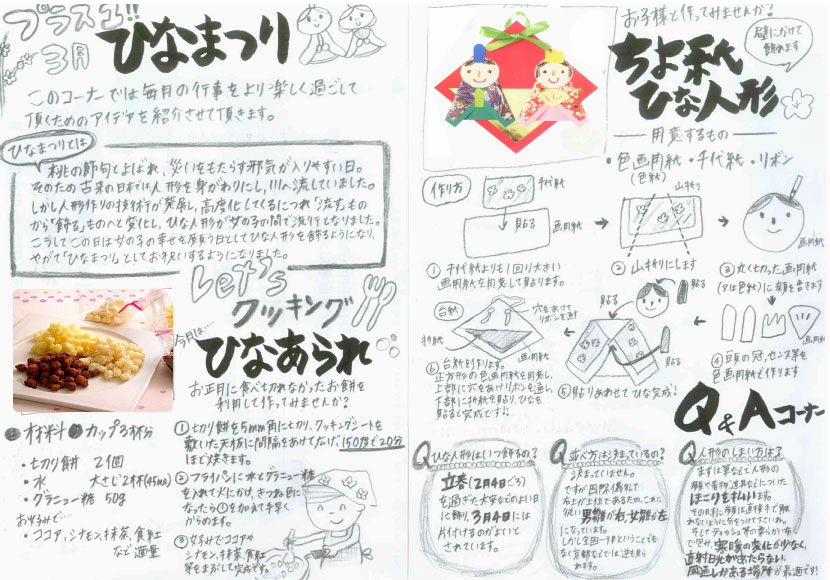 プラスエ!!
3月
ひなまつり
このコーナーでは毎月の行事をより楽しく過ごして
頂くためのアイデアを紹介させて頂きます。
ひなまつりとは
桃の節句とよばれ、災いをもたらす邪気が入りやすい日。
そのため古来の日本では人形を身がわりにし、川へ流していました。
しかし人形作りの技術が発展し、高度化してくるにつれ「流す」もの
から「飾る」ものへと変化し、ひな人形が女の子の間で流行となりました。
こうしてこの日は女の子の幸せを願う日としてひな人形を飾るようになり、
やがて「ひなまつり」としてお祝いするようになりました。
Let's
クッキング
今日は…
ひなあられ
お正月に食べ切れなかったお餅を
利用して作ってみませんか?
材料 カップ3杯分
・切り餅 2個
・水 大さじ2杯(45ml)
・グラニュー糖 50g
お好みで…
・ココア、シナモン、抹茶、食紅
など適量
①切り餅を5mm角に切り、クッキングシートを
敷いた天板に間隔をあけて広げ、150度で20分
ほど焼きます。
②フライパンに水とグラニュー糖
を入れて火にかけ、きつね色に
なったら①を加えて手早く
からめます。
③お好みでココアや
シナモン、抹茶、食紅
等をまぶして完成です。
お子様と作ってみませんか?
壁にかけて
飾れます
ちよ紙
ひな人形
用意するもの
・色画用紙・千代紙・リボン
(色紙)
作り方
千代紙
貼る
画用紙
山折り
画用紙
①千代紙よりも1回り大きい
画用紙を用意して貼ります。
②山折りにします
③丸く切った画用紙
(又は色紙)に顔を書きます
台紙
穴をあけて
リボンを通す
折紙
画用紙
貼る
貼る
画用紙
④頭の冠、センス等を
色画用紙で作ります
⑤貼りあわせてひな完成!
⑥台紙を作ります。
正方形の色画用紙を用意し、
上部に穴をあけリボンを通し、
下部に折紙を貼り、ひなを
貼ると完成です!!
Q&Aコーナー
Qひな人形はいつ飾るの?
立春(2月4日ごろ)
を過ぎた大安などのよい日
に飾り、3月4日には
片付けるのがよいと
されています。
Q並べ方は決まっているの?
決まっていません。
ですが国際儀礼で
右上が上位であるため、これに
従い男雛が右、女雛が左
になっています。
しかし全国一律ということでも
なく京都などでは逆も見ら
れます。
Q人形のしまい方は?
まずは筆などで人形の
顔や着物、道具などについた
ほこりを払います。
その時に顔は直接手で触
れないように気をつけて下さいね。
そしてティッシュ等の柔らかい布
で包み、寒暖の変化が少なく、
直射日光があたらない、
風通しがある場所が最適です!